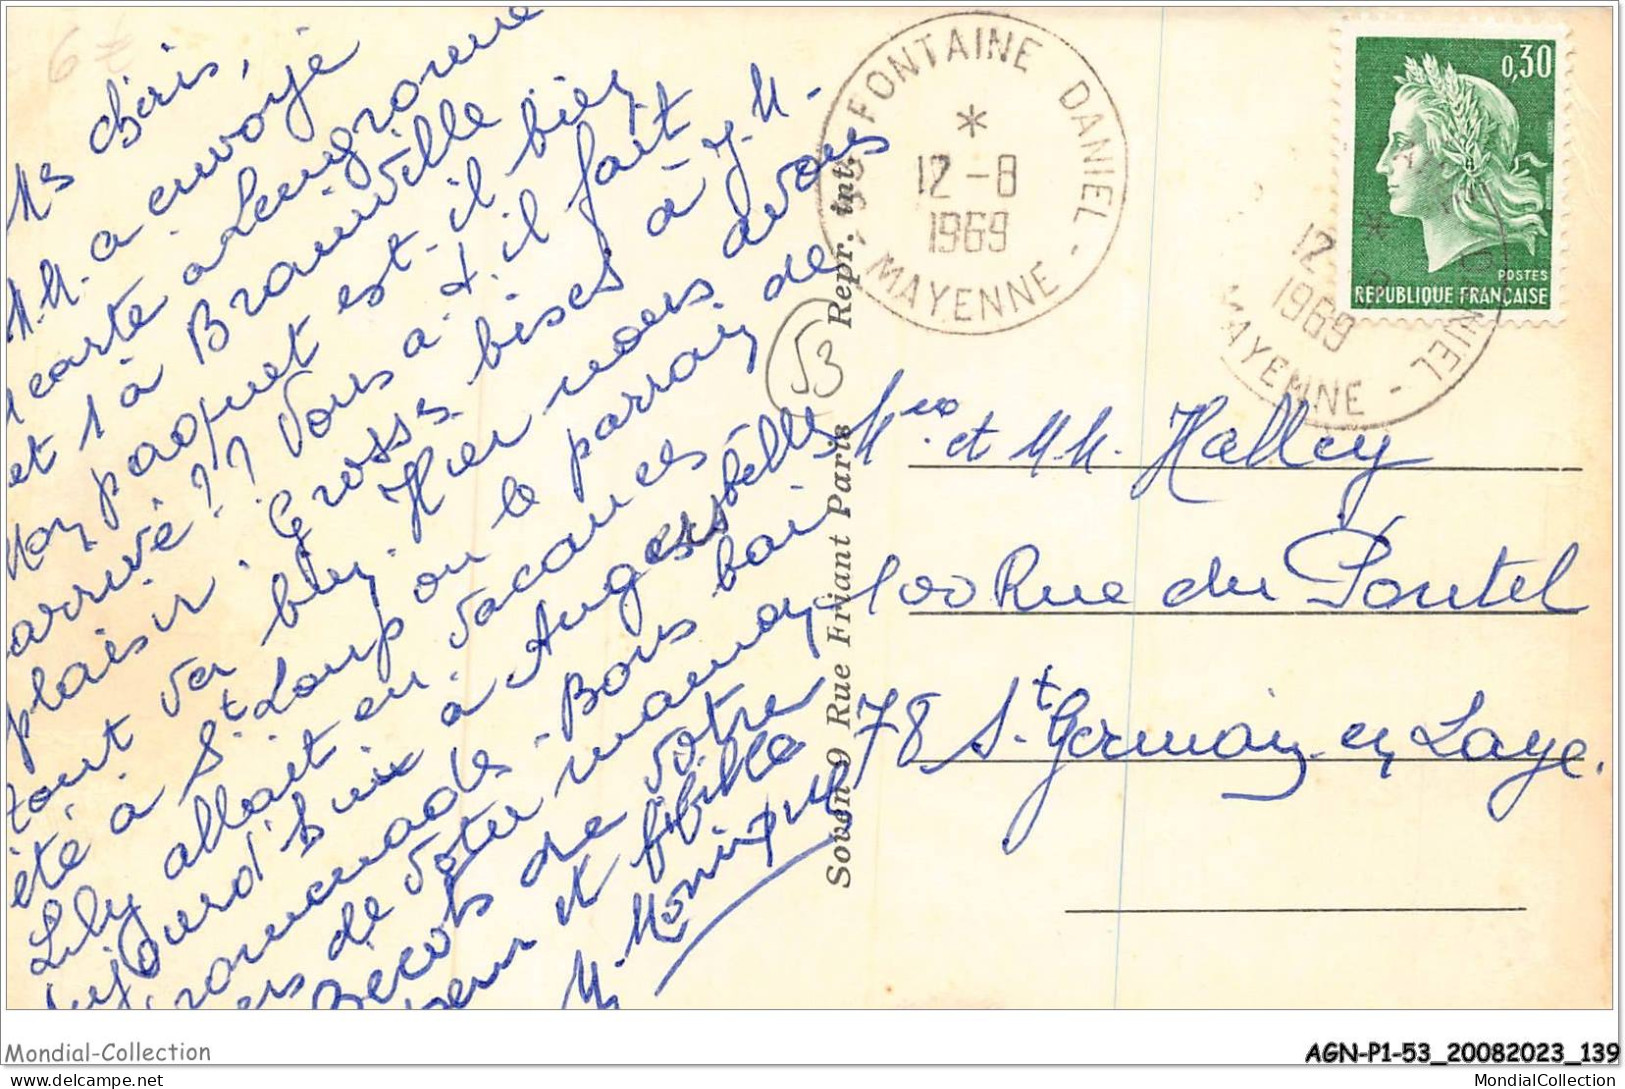 Ms chéris,
M.M. a envoyé
1 carte à Lengronne
et 1 à Brainville
Mon paquet est-il bien
arrivé ?? Vous a-t-il fait
plaisir. Grosses bises à J.M.
tout va bien. Hier nous avons
été à St Loup où le parrain de
Lily allait en vacances
aujourd'hui à Auges belle
promenade. Bons bai
sers de votre maman
Bécots de votre
soeur et fifille
M. Monique
FONTAINE DANIEL
*
12-8
1969
53 MAYENNE
0,30
POSTES
REPUBLIQUE FRANÇAISE
*
12-8
1969
MAYENNE
53
9 Rue Friant Paris Repr. int.
et M.M. Halley
100 Rue du Pontel
78 St Germain en Laye.
Mondial-Collection
AGN-P1-53_20082023_139
delcampe.net
MondialCollection